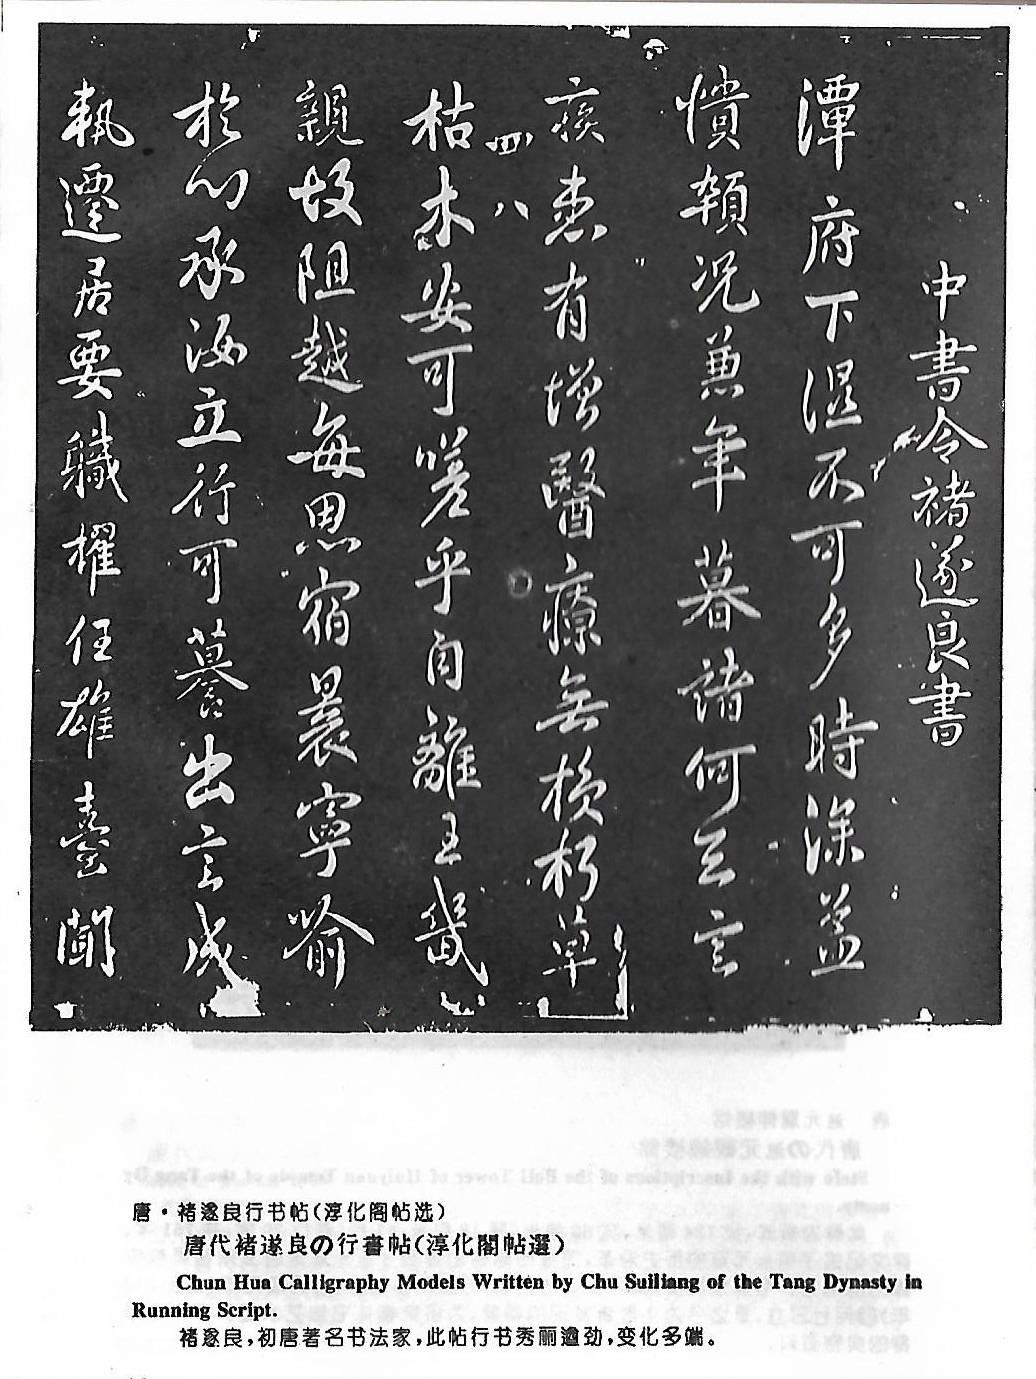 中書令褚遂良書
潭府下濕不可多時深益
憒頓況兼年暮諸何可言
疾患有增醫療無損朽草
枯木安可嗟乎自離王畿
親故阻越每思宿昔寧喻
於心承汝立行可養出言成
執遷居要職擢任雄臺聞
四
八
唐·褚遂良行书帖(淳化阁帖选)
唐代褚遂良の行書帖(淳化閣帖選)
Chun Hua Calligraphy Models Written by Chu Suiliang of the Tang Dynasty in
Running Script.
褚遂良,初唐著名书法家,此帖行书秀丽遒劲,变化多端。